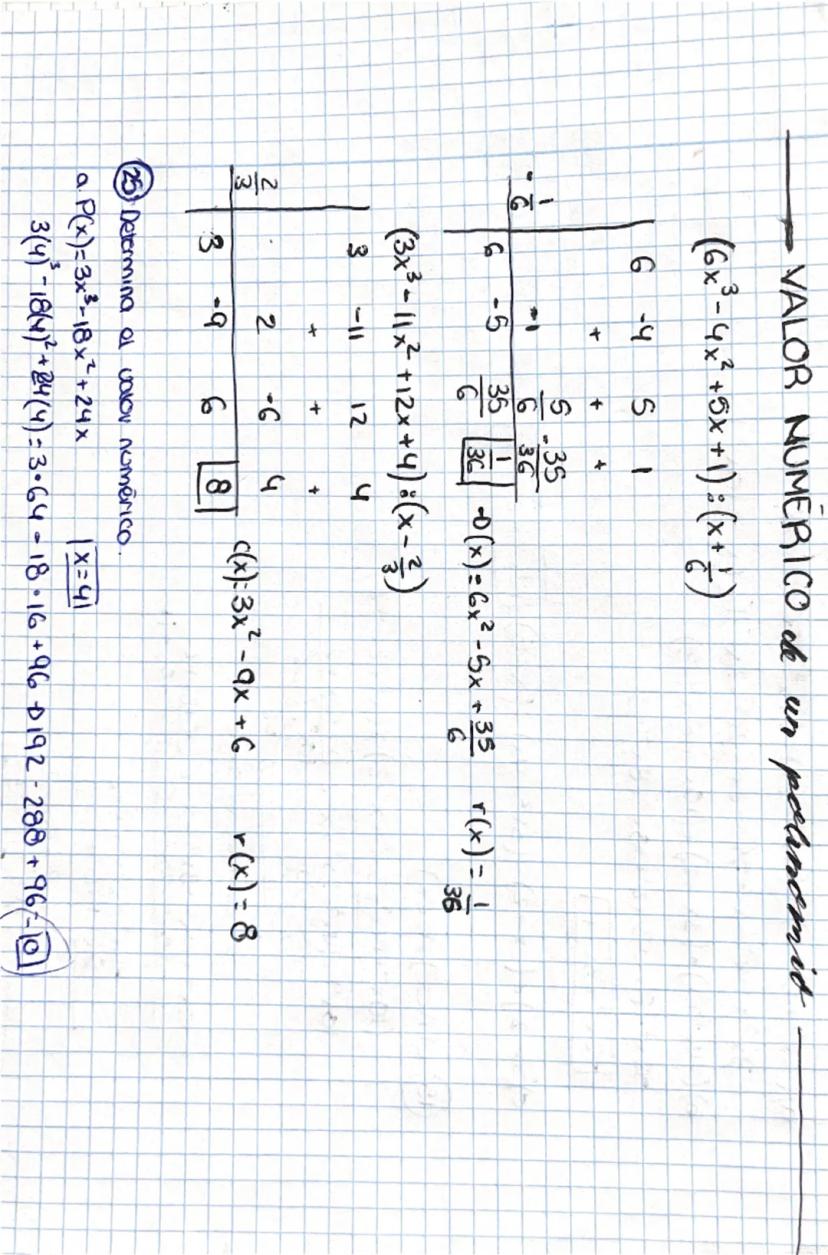 VALOR NUMÉRICO de un polinomio
(6x³ - 4x² + 5x + 1) : (x + 1/6)
6 -4 5 1
+ + +
-1/6 -1 5/6 -35/36
6 -5 35/6 1/36 C(x) = 6x² - 5x + 35/6 r(x) = 1/36
(3x³ - 11x² + 12x + 4) : (x - 2/3)
3 -11 12 4
+ + +
2/3 2 -6 4
3 -9 6 8 C(x) = 3x² - 9x + 6 r(x) = 8
25 Determina el valor numérico.
a. P(x) = 3x³ - 18x² + 24x x = 4
3(4)³ - 18(4)² + 24(4) = 3·64 - 18·16 + 96 → 192 - 288 + 96 = 0